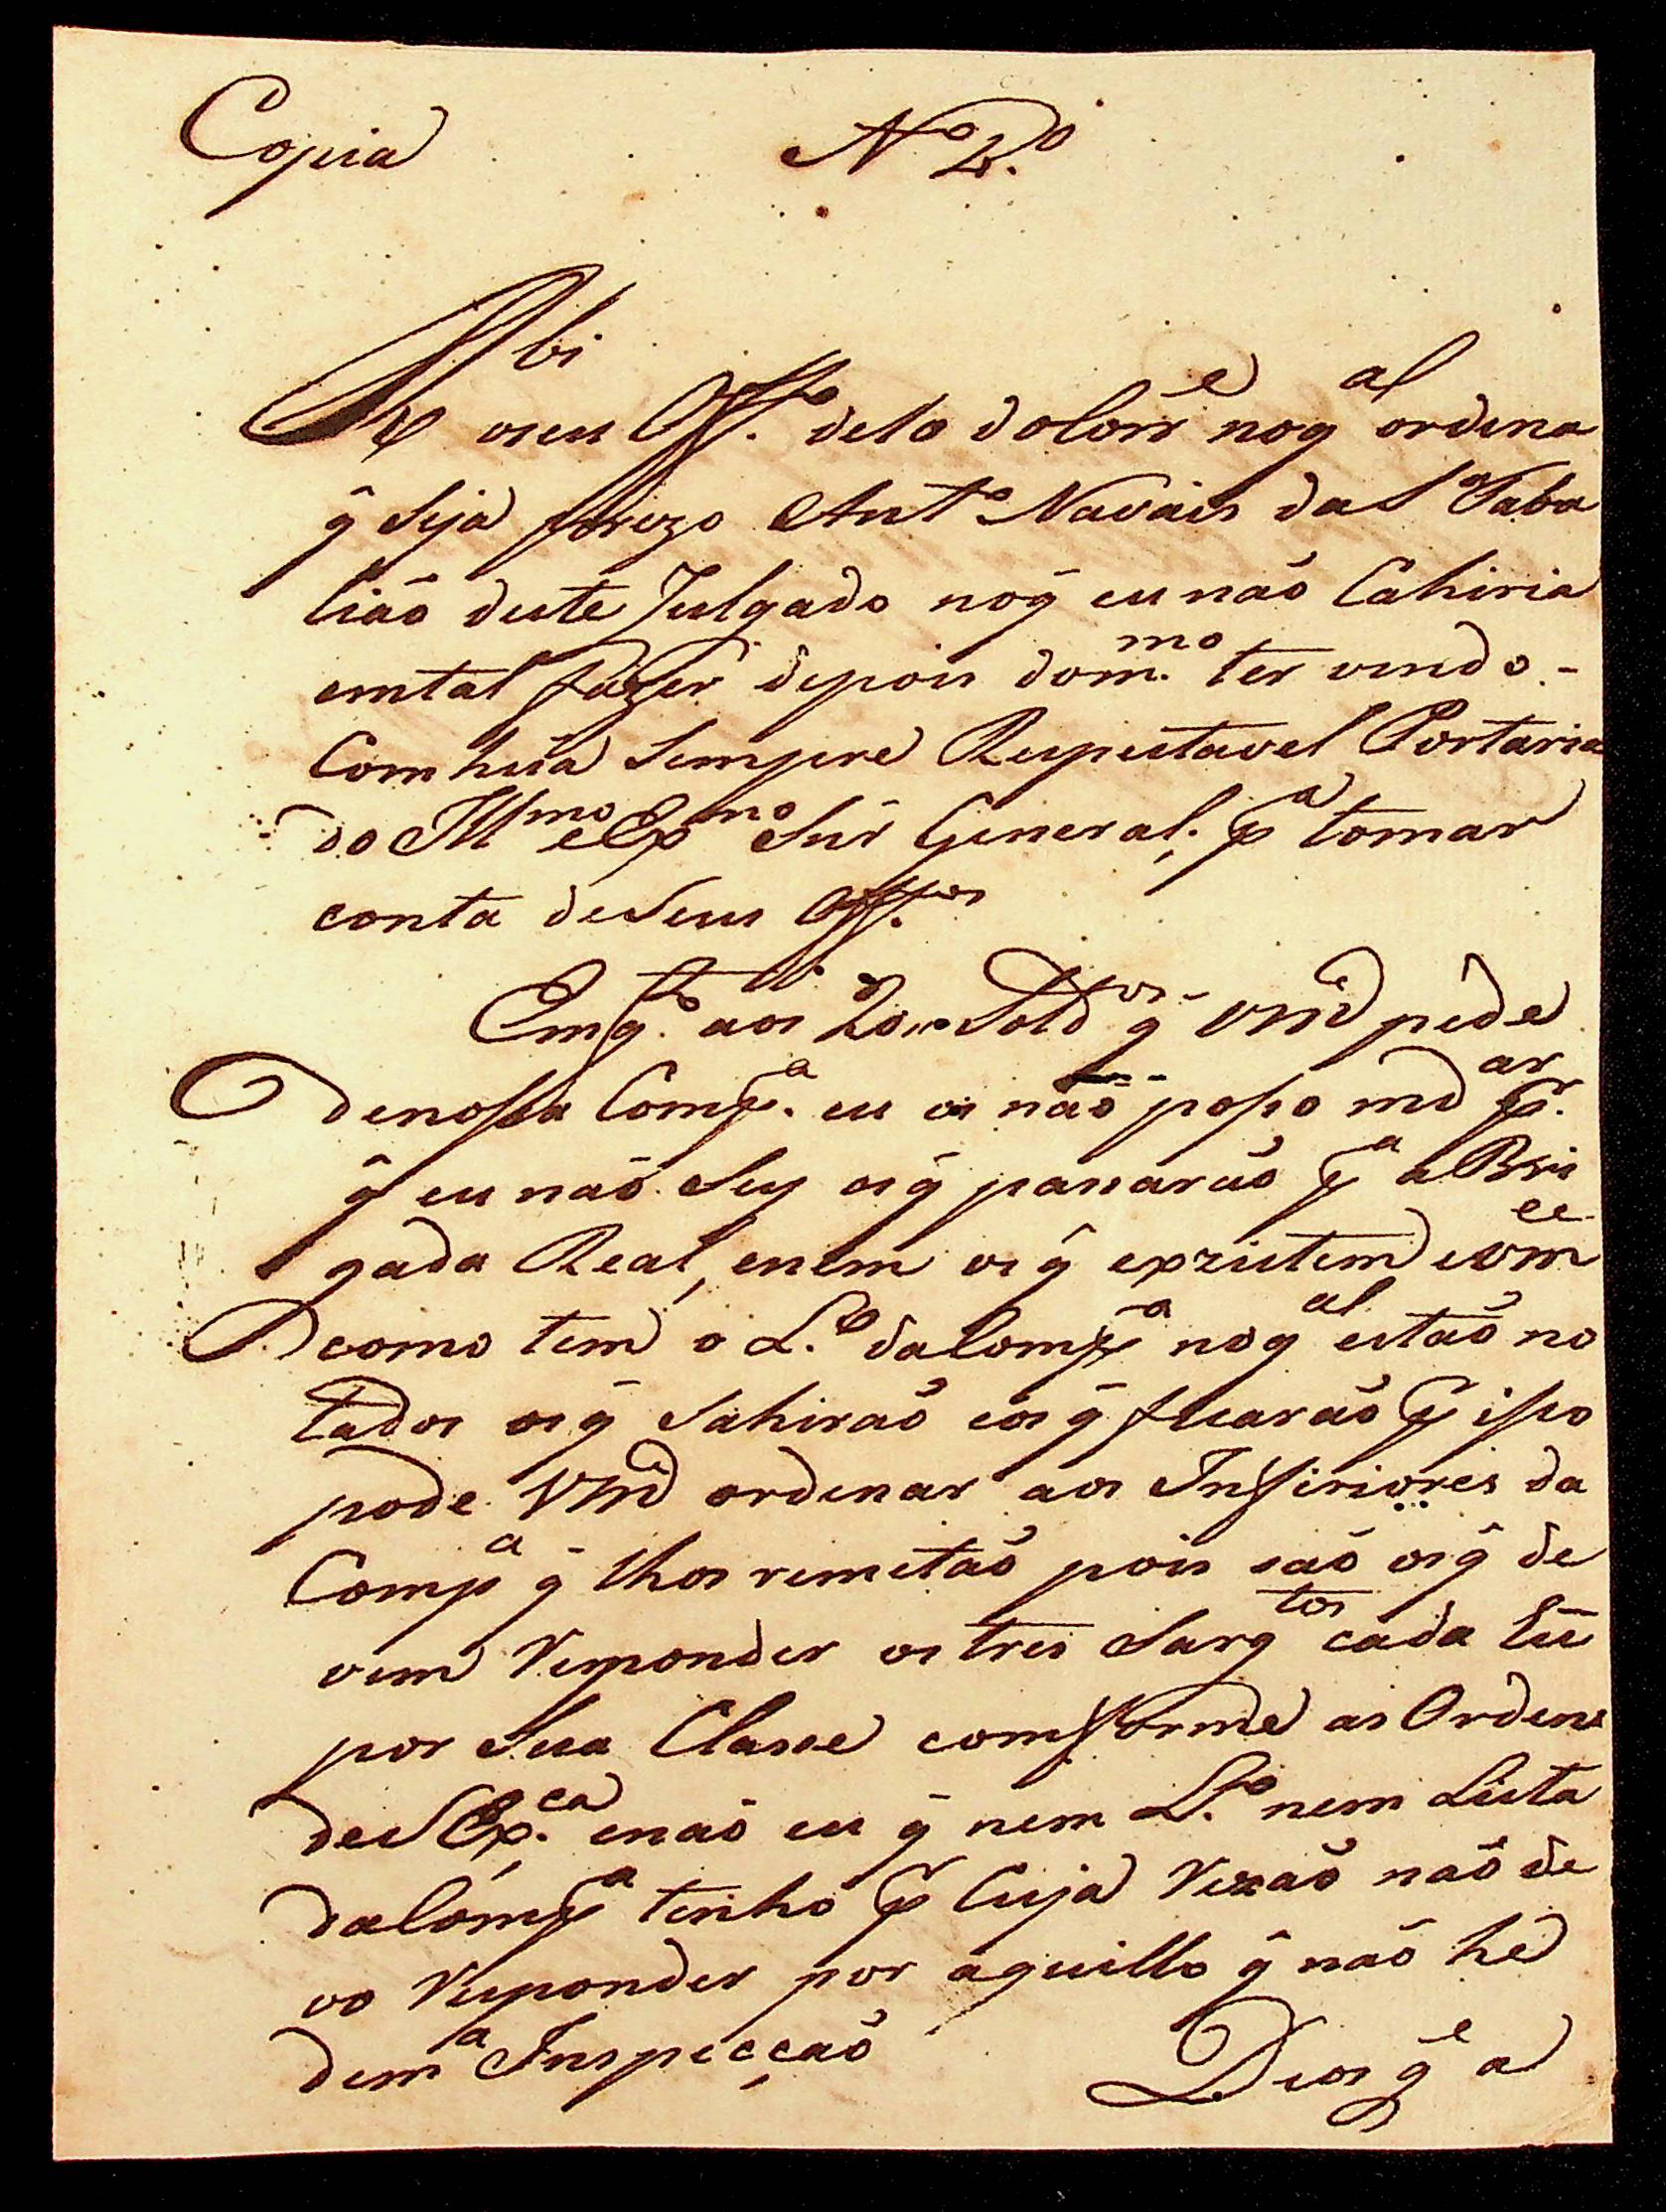 Copia Nº 2.º
Rbi
o seu Off.º de 10 do Corr.e no q al ordena
q̃ Seja prezo Ant.º Navais da S.ª Taba
lião deste Julgado no q̃ eu não Cahiria
em tal fazer depois do m.mo ter vindo. -
Com hũa Sempre Respeitavel Portaria
do Ill mo e Ex mo Snr̃ General, p a tomar
conta de Seus Off.os
Emq.to aos 20 Sold os q̃ Vm̃ pede
de nossa Comp.a eu os não posso md ar p.r
q̃ eu não Sey os q̃ passarão p a a Bri
gada Real, e nem os q̃ exzistem e Vm ce
como tem o L.º da Comp a no q al estão no
tados os q̃ Sahirão e os q̃ ficarão p isso
pode Vm̃ ordenar aos Inferiores da
Comp a q̃ lhos remetão pois são os q̃ de
vem Responder os tres Sarg tos cada hũ
por Sua Classe comforme as Ordens
de S Ex.ca e não eu q̃ nem L.º nem Lista
da Comp a tenho p Cuja Rezão não de
vo Responder por aquillo q̃ não he
de m a Inspecção Deos g e a